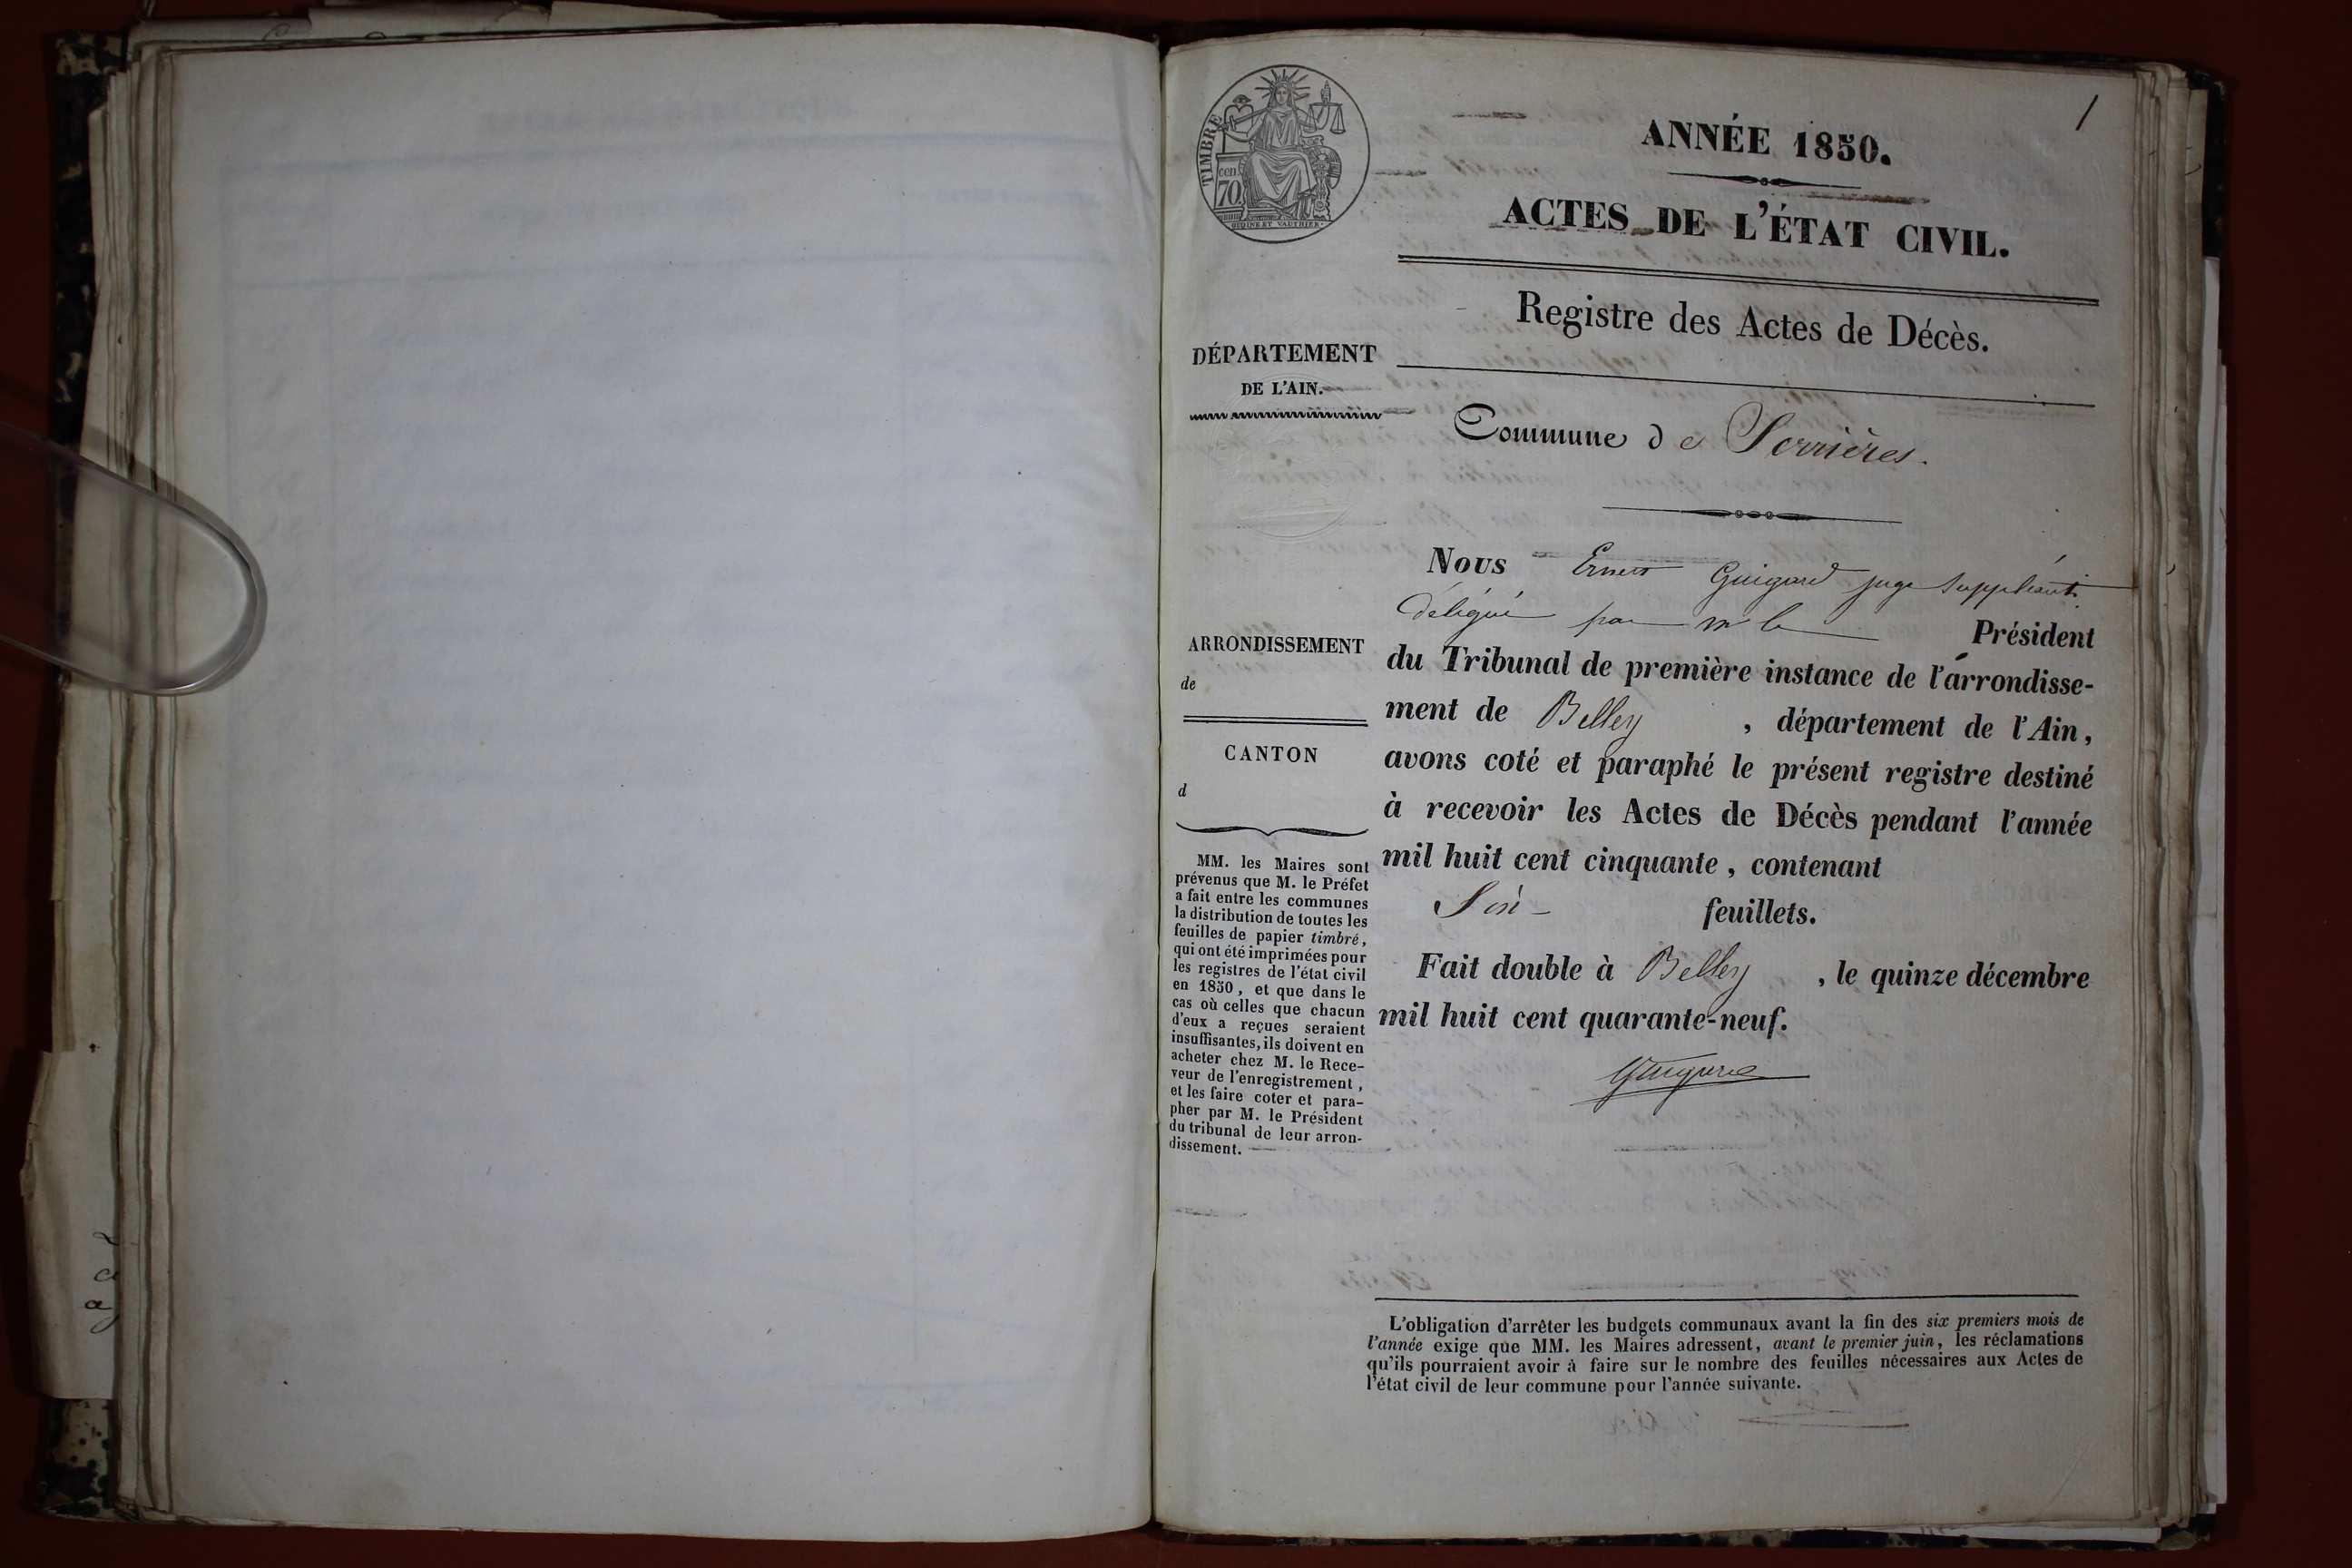 1
TIMBRE
cen.
70
OUDINE ET VAUTHIER
ANNÉE 1850.
ACTES DE L'ÉTAT CIVIL.
Registre des Actes de Décès.
DÉPARTEMENT
DE L'AIN.
Commune de Serrières.
Nous Ernest Guigard juge suppléant
délégué par mr le Président
du Tribunal de première instance de l'arrondisse-
ment de Belley , département de l'Ain,
avons coté et paraphé le présent registre destiné
à recevoir les Actes de Décès pendant l'année
mil huit cent cinquante, contenant
Six feuillets.
Fait double à Belley , le quinze décembre
mil huit cent quarante-neuf.
Guigard
ARRONDISSEMENT
de
CANTON
d
MM. les Maires sont
prévenus que M. le Préfet
a fait entre les communes
la distribution de toutes les
feuilles de papier timbré,
qui ont été imprimées pour
les registres de l'état civil
en 1850, et que dans le
cas où celles que chacun
d'eux a reçues seraient
insuffisantes, ils doivent en
acheter chez M. le Rece-
veur de l'enregistrement,
et les faire coter et para-
pher par M. le Président
du tribunal de leur arron-
dissement.
L'obligation d'arrêter les budgets communaux avant la fin des six premiers mois de
l'année exige que MM. les Maires adressent, avant le premier juin, les réclamations
qu'ils pourraient avoir à faire sur le nombre des feuilles nécessaires aux Actes de
l'état civil de leur commune pour l'année suivante.